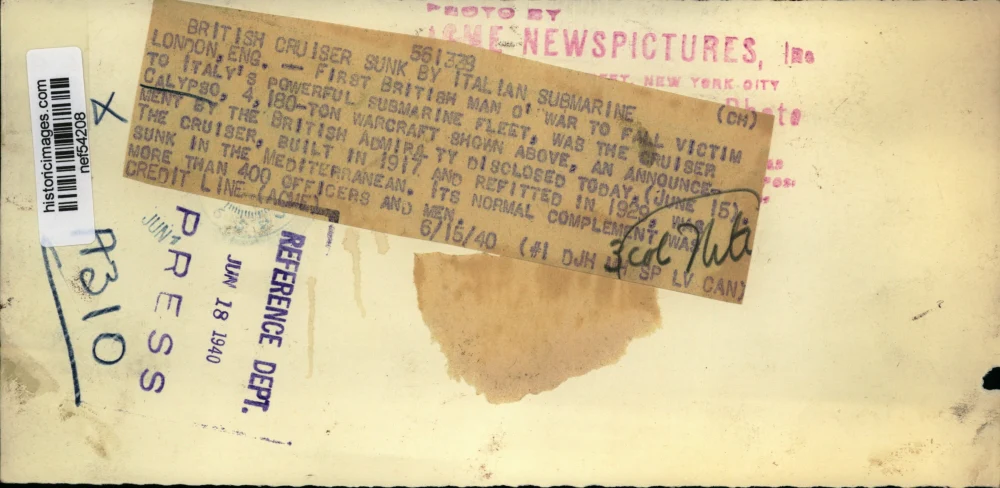 PHOTO BY
ACME NEWSPICTURES, Inc
STREET, NEW YORK CITY
Photo
561329 (CH)
BRITISH CRUISER SUNK BY ITALIAN SUBMARINE
LONDON, ENG. — FIRST BRITISH MAN O' WAR TO FALL VICTIM
TO ITALY'S POWERFUL SUBMARINE FLEET, WAS THE CRUISER
CALYPSO, 4,180-TON WARCRAFT SHOWN ABOVE, AN ANNOUNCE-
MENT BY THE BRITISH ADMIRALTY DISCLOSED TODAY, (JUNE 15).
THE CRUISER, BUILT IN 1917 AND REFITTED IN 1929, WAS
SUNK IN THE MEDITERRANEAN. ITS NORMAL COMPLEMENT WAS
MORE THAN 400 OFFICERS AND MEN.
CREDIT LINE (ACME) 6/15/40 (#1 DJH SP LV CAN)
3 col
historicimages.com
nef54208
X
9310
JUN
PRESS
JUN 18 1940
REFERENCE DEPT.